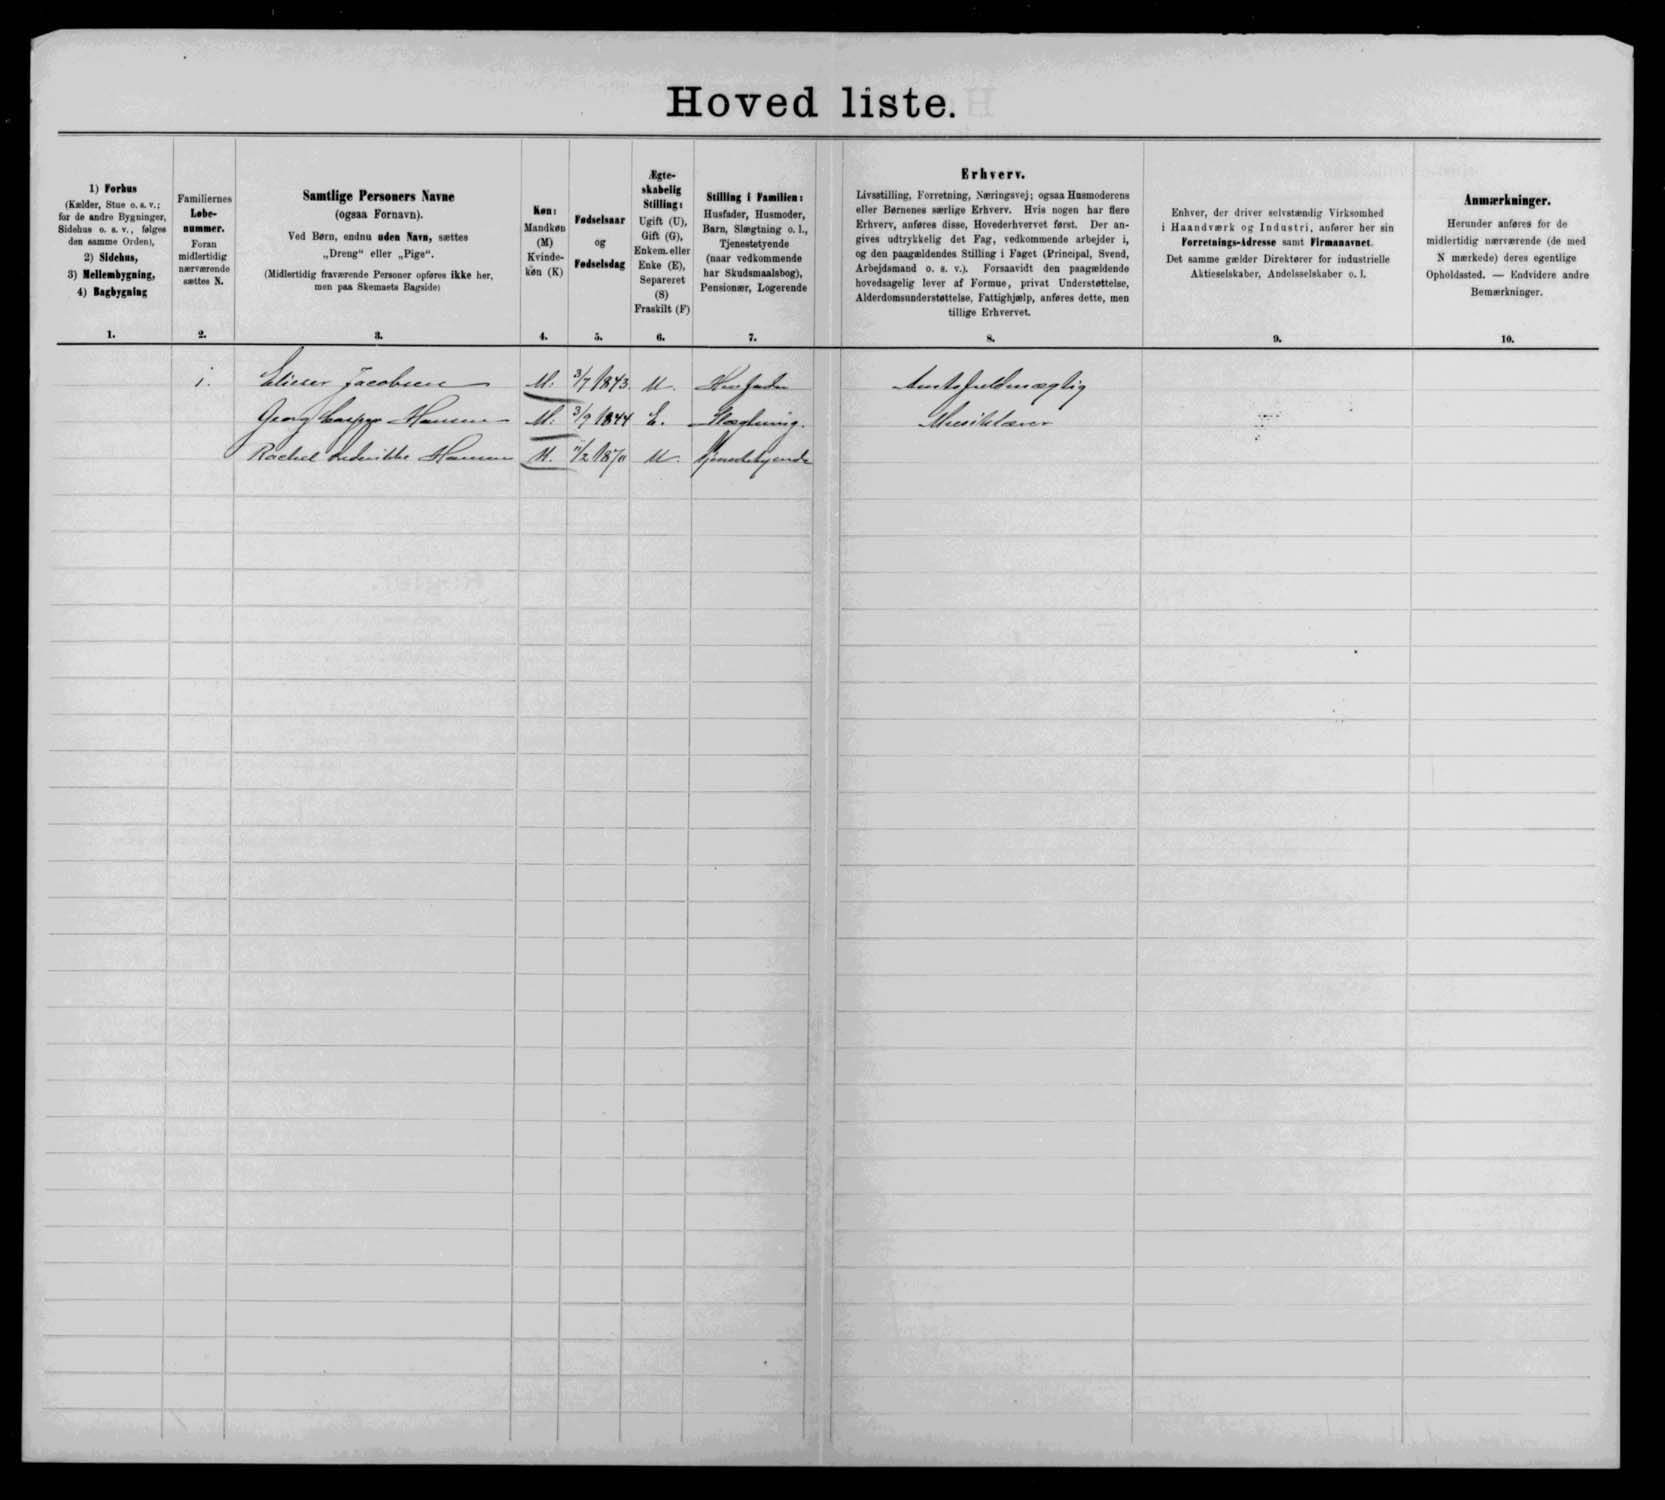 Hoved liste.
1) Forhus
(Kælder, Stue o. s. v.;
for de andre Bygninger,
Sidehus o. s. v., følges
den samme Orden),
2) Sidehus,
3) Mellembygning,
4) Bagbygning
1.
Familiernes
Løbe-
nummer.
Foran
midlertidig
nærværende
sættes N.
2.
Samtlige Personers Navne
(ogsaa Fornavn).
Ved Børn, endnu uden Navn, sættes
„Dreng“ eller „Pige“.
(Midlertidig fraværende Personer opføres ikke her,
men paa Skemaets Bagside)
3.
Køn:
Mandkøn
(M)
Kvinde-
køn (K)
4.
Fødselsaar
og
Fødselsdag
5.
Ægte-
skabelig
Stilling:
Ugift (U),
Gift (G),
Enkem. eller
Enke (E),
Separeret
(S)
Fraskilt (F)
6.
Stilling i Familien:
Husfader, Husmoder,
Barn, Slægtning o. l.,
Tjenestetyende
(naar vedkommende
har Skudsmaalsbog),
Pensionær, Logerende
7.
Erhverv.
Livsstilling, Forretning, Næringsvej; ogsaa Husmoderens
eller Børnenes særlige Erhverv. Hvis nogen har flere
Erhverv, anføres disse, Hovederhvervet først. Der an-
gives udtrykkelig det Fag, vedkommende arbejder i,
og den paagældendes Stilling i Faget (Principal, Svend,
Arbejdsmand o. s. v.). Forsaavidt den paagældende
hovedsagelig lever af Formue, privat Understøttelse,
Alderdomsunderstøttelse, Fattighjælp, anføres dette, men
tillige Erhvervet.
8.
Enhver, der driver selvstændig Virksomhed
i Haandværk og Industri, anfører her sin
Forretnings-Adresse samt Firmanavnet.
Det samme gælder Direktører for industrielle
Aktieselskaber, Andelsselskaber o. l.
9.
Anmærkninger.
Herunder anføres for de
midlertidig nærværende (de med
N mærkede) deres egentlige
Opholdssted. — Endvidere andre
Bemærkninger.
10.
1. Elieser Jacobsen M. 3/7 1843 U. Husfader Amtsfuldmægtig
Georg Hansen M. 3/9 1844 E. Slægtning. Musiklærer
Rachel Hansen 1870 U. tjenestetyende